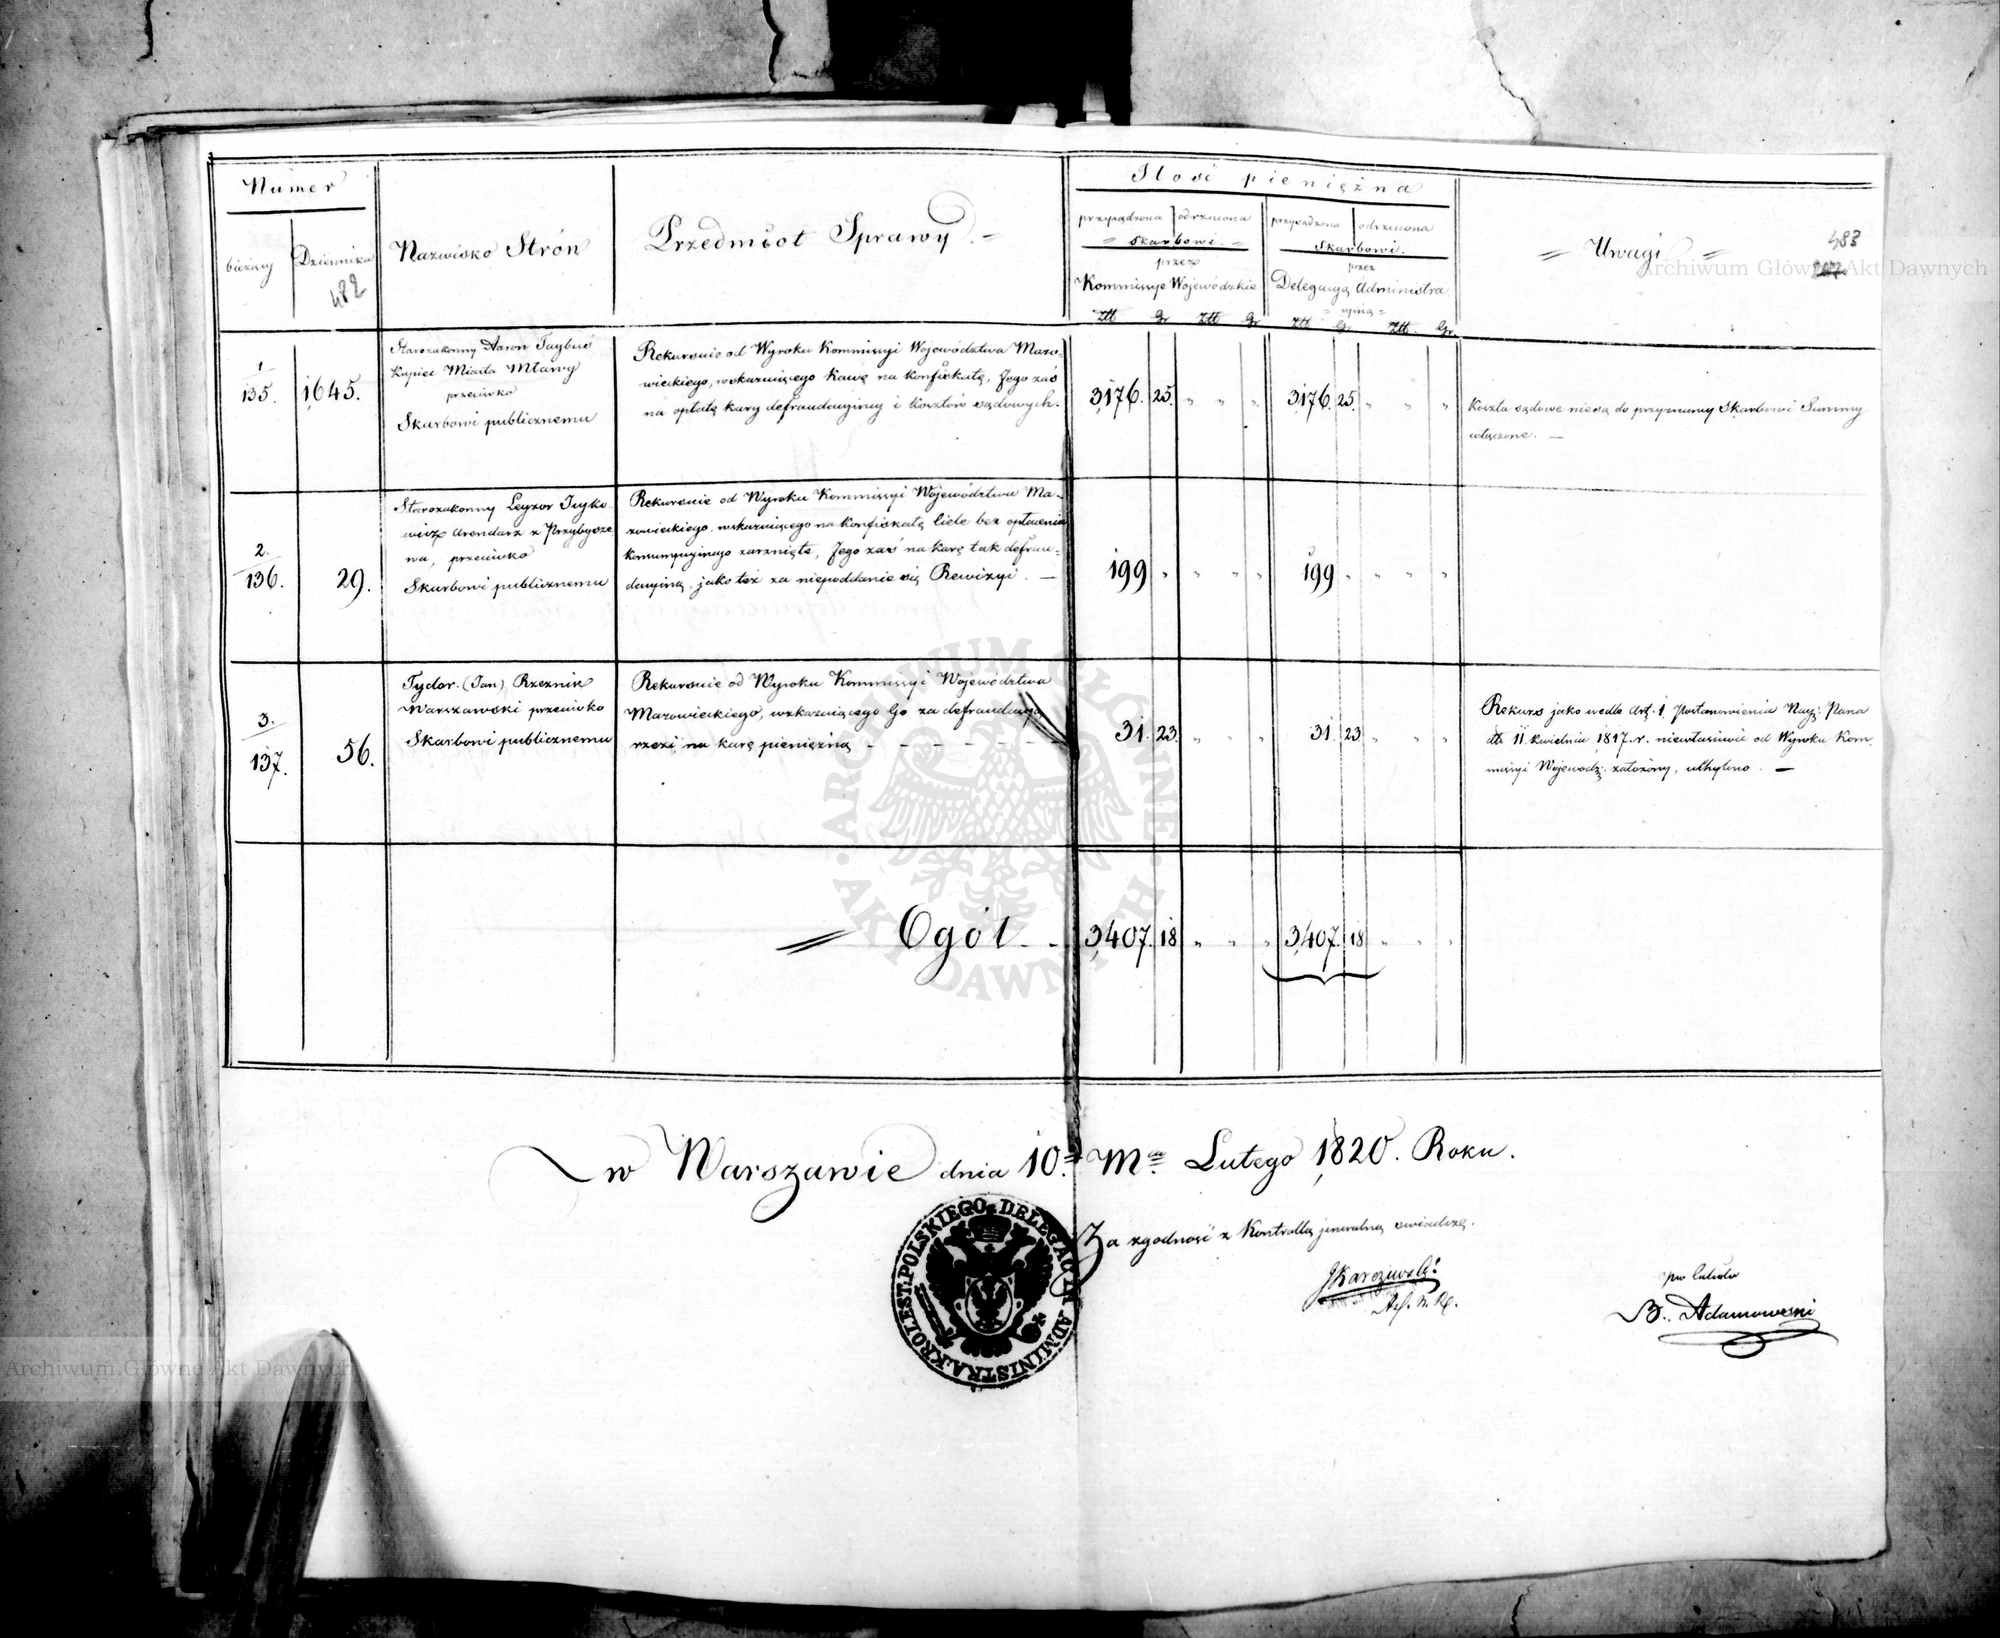 Numer
bieżący
Dziennika
482
Nazwisko Strón
Przedmiot Sprawy. =
Ilość pieniężna
przysądzona odrzucona
= Skarbowi. =
przez
Kommissye Wojewódzkie
Ztt Gr Ztt Gr
przysądzona odrzucona
Skarbowi.
przez
Delegacyą Administra
= cyiną =
Ztt Gr Ztt. Gr.
= Uwagi =
483
1
135.
1,645.
Starozakonny Aaron Taybuś
Kupiec Miasta Mławy
przeciwko
Skarbowi publicznemu
Rekursuie od Wyroku Kommissyi Województwa Mazo-
wieckiego, wskazuiącego Kawę na Konfiskatę, Jego zaś
na opłatę kary defraudacyiney i Kosztów sądowych.
3,176. 25. " " "
3,176. 25. " " "
Koszta sądowe niesą do przyznaney Skarbowi Summy
włączone. —
2.
136.
29.
Starozakonny Leyzor Icyko
wicz Arendarz z Przybysze
wa, przeciwko
Skarbowi publicznemu
Rekursuie od Wyroku Kommissyi Województwa Ma-
zowieckiego, wskazuiącego na Konfiskatę Ciele bez opłacenia
Konsumpcyinego zarznięte, Jego zaś na Karę tak defrau-
dacyiną, jako też za niepoddanie się Rewizyi. —
199 " " " "
199 " " " "
3.
137.
56.
Fydor. (Jan) Rzeznik
Warszawski przeciwko
Skarbowi publicznemu
Rekursuie od Wyroku Kommissyi Województwa
Mazowieckiego, wskazuiącego Go za defraudacyą
rzezi, na karę pieniężną - - - - - -
31. 23. " " "
31. 23 " " "
Rekurs jako wedle Art: 1. Postanowienia Nayj: Pana
dtt 11 Kwietnia 1817. r. niewłaściwie od Wyroku Kom
missyi Wojewodz: założony, uchylono. —
= Ogół. - -
3,407. 18 " " "
3,407. 18 " " "
w Warszawie dnia 10. Mca Lutego 1,820. Roku.
Za zgodność z Kontrollą jeneralną swiadczę.
JKarczewski
po Lutoto
B. Adamowski
KROLEST: POLSKIEGO DELEGACYIA ADMINISTRA
ARCHIWUM GŁÓWNE AKT DAWNYCH
Archiwum Główne Akt Dawnych
Archiwum Główne Akt Dawnych